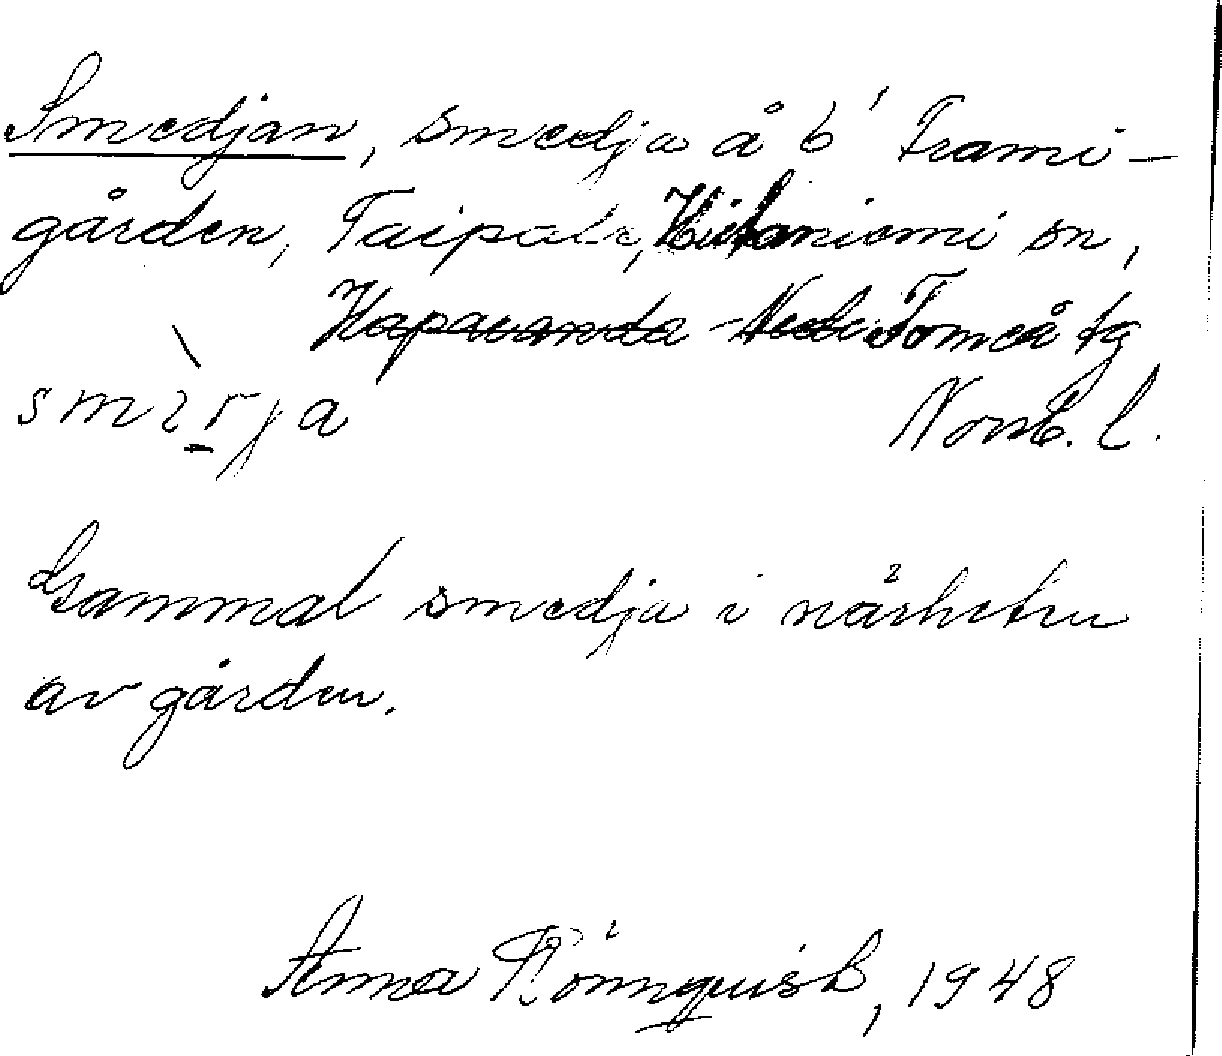 Smedjan, smedja å 6¹ Frami-
gården, Taipale, Hietaniemi sn,
Haparanda Torneå tg
smirja
Norrb. l.
Gammal smedja i närheten
av gården.
Anna Rönnquist, 1948